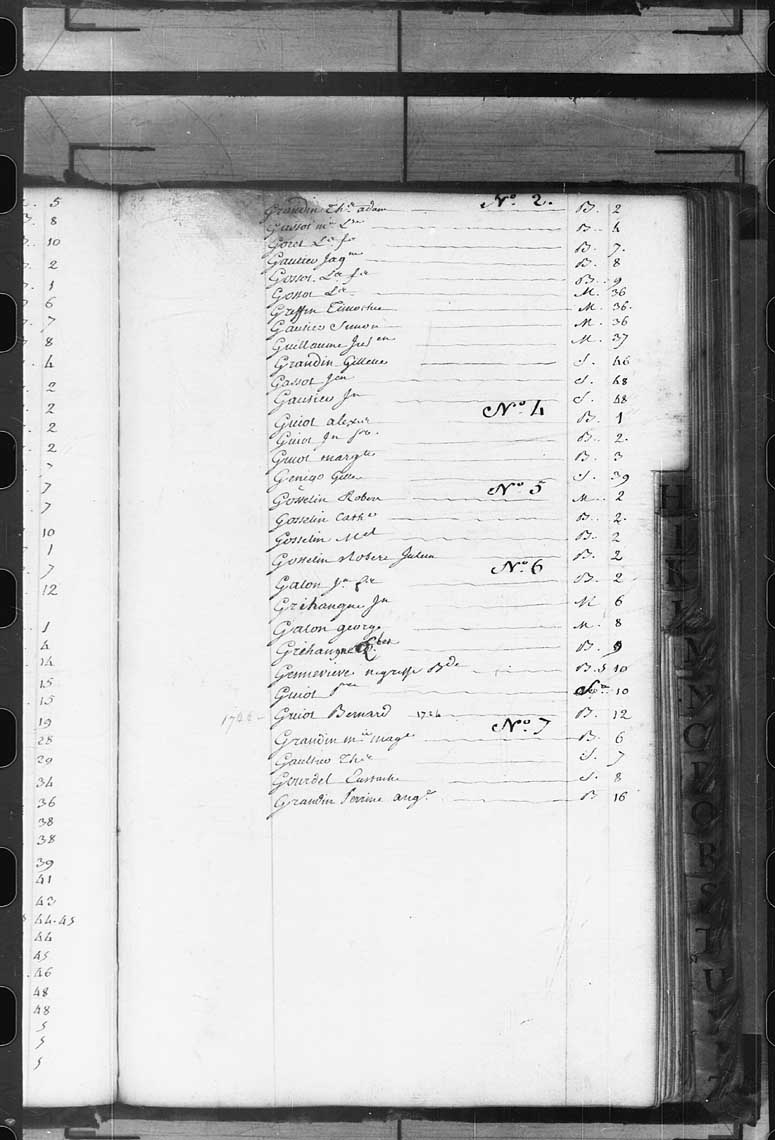 5
8
10
2
1
6
7
8
4
2
2
2
2
7
7
7
10
1
7
12
1
4
14
15
15
19
28
29
34
36
38
38
39
41
43
44-45
44
45
46
48
48
5
5
5
No. 2.
Grandin Thr. adam B. 2
Gassot mie Lse B. 4
Goret Ls fs B. 7.
Gautier Jaqme B. 8
Gossot Lse fse B. 9
Gossot Lse M. 36
Griffin Timothée M. 36.
Gautier Simon M. 36
Guillaume Jusen M. 37
Grandin Gillette S. 46
Gassot Jen S. 48
Gautier Jn S. 48
No 4
Guiot alexdr B. 1
Guiot Jn fs. B. 2.
Guiot margte B. 3
Genigo Gille S. 39
No 5
Gosselin Rober M. 2
Gosselin Cathe B. 2.
Gosselin Mel B. 2
Gosselin Robere Julien B. 2
No. 6
Galon Jn fse B. 2
Gréhangne Jn M 6
Galon george M. 8
Gréhangne B. 9
Gennevieve negresse Bde B. S 10
Guiot 10
Guiot Bernard 1726 B. 12
No. 7
Grandin mie mage B. 6
Gaultier Thr S. 7
Gourdel Eustache S. 8
Grandin Perrine ange B 16
H
I
K
L
M
N
O
P
Q
R
S
T
U